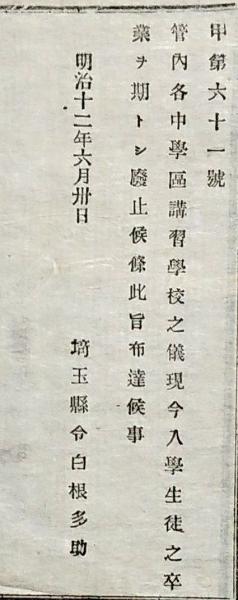 甲第六十一號
管内各中學區講習學校之儀現今入學生徒之卒
業ヲ期トシ廢止候條此旨布達候事
明治十二年六月卅日
埼玉縣令白根多助